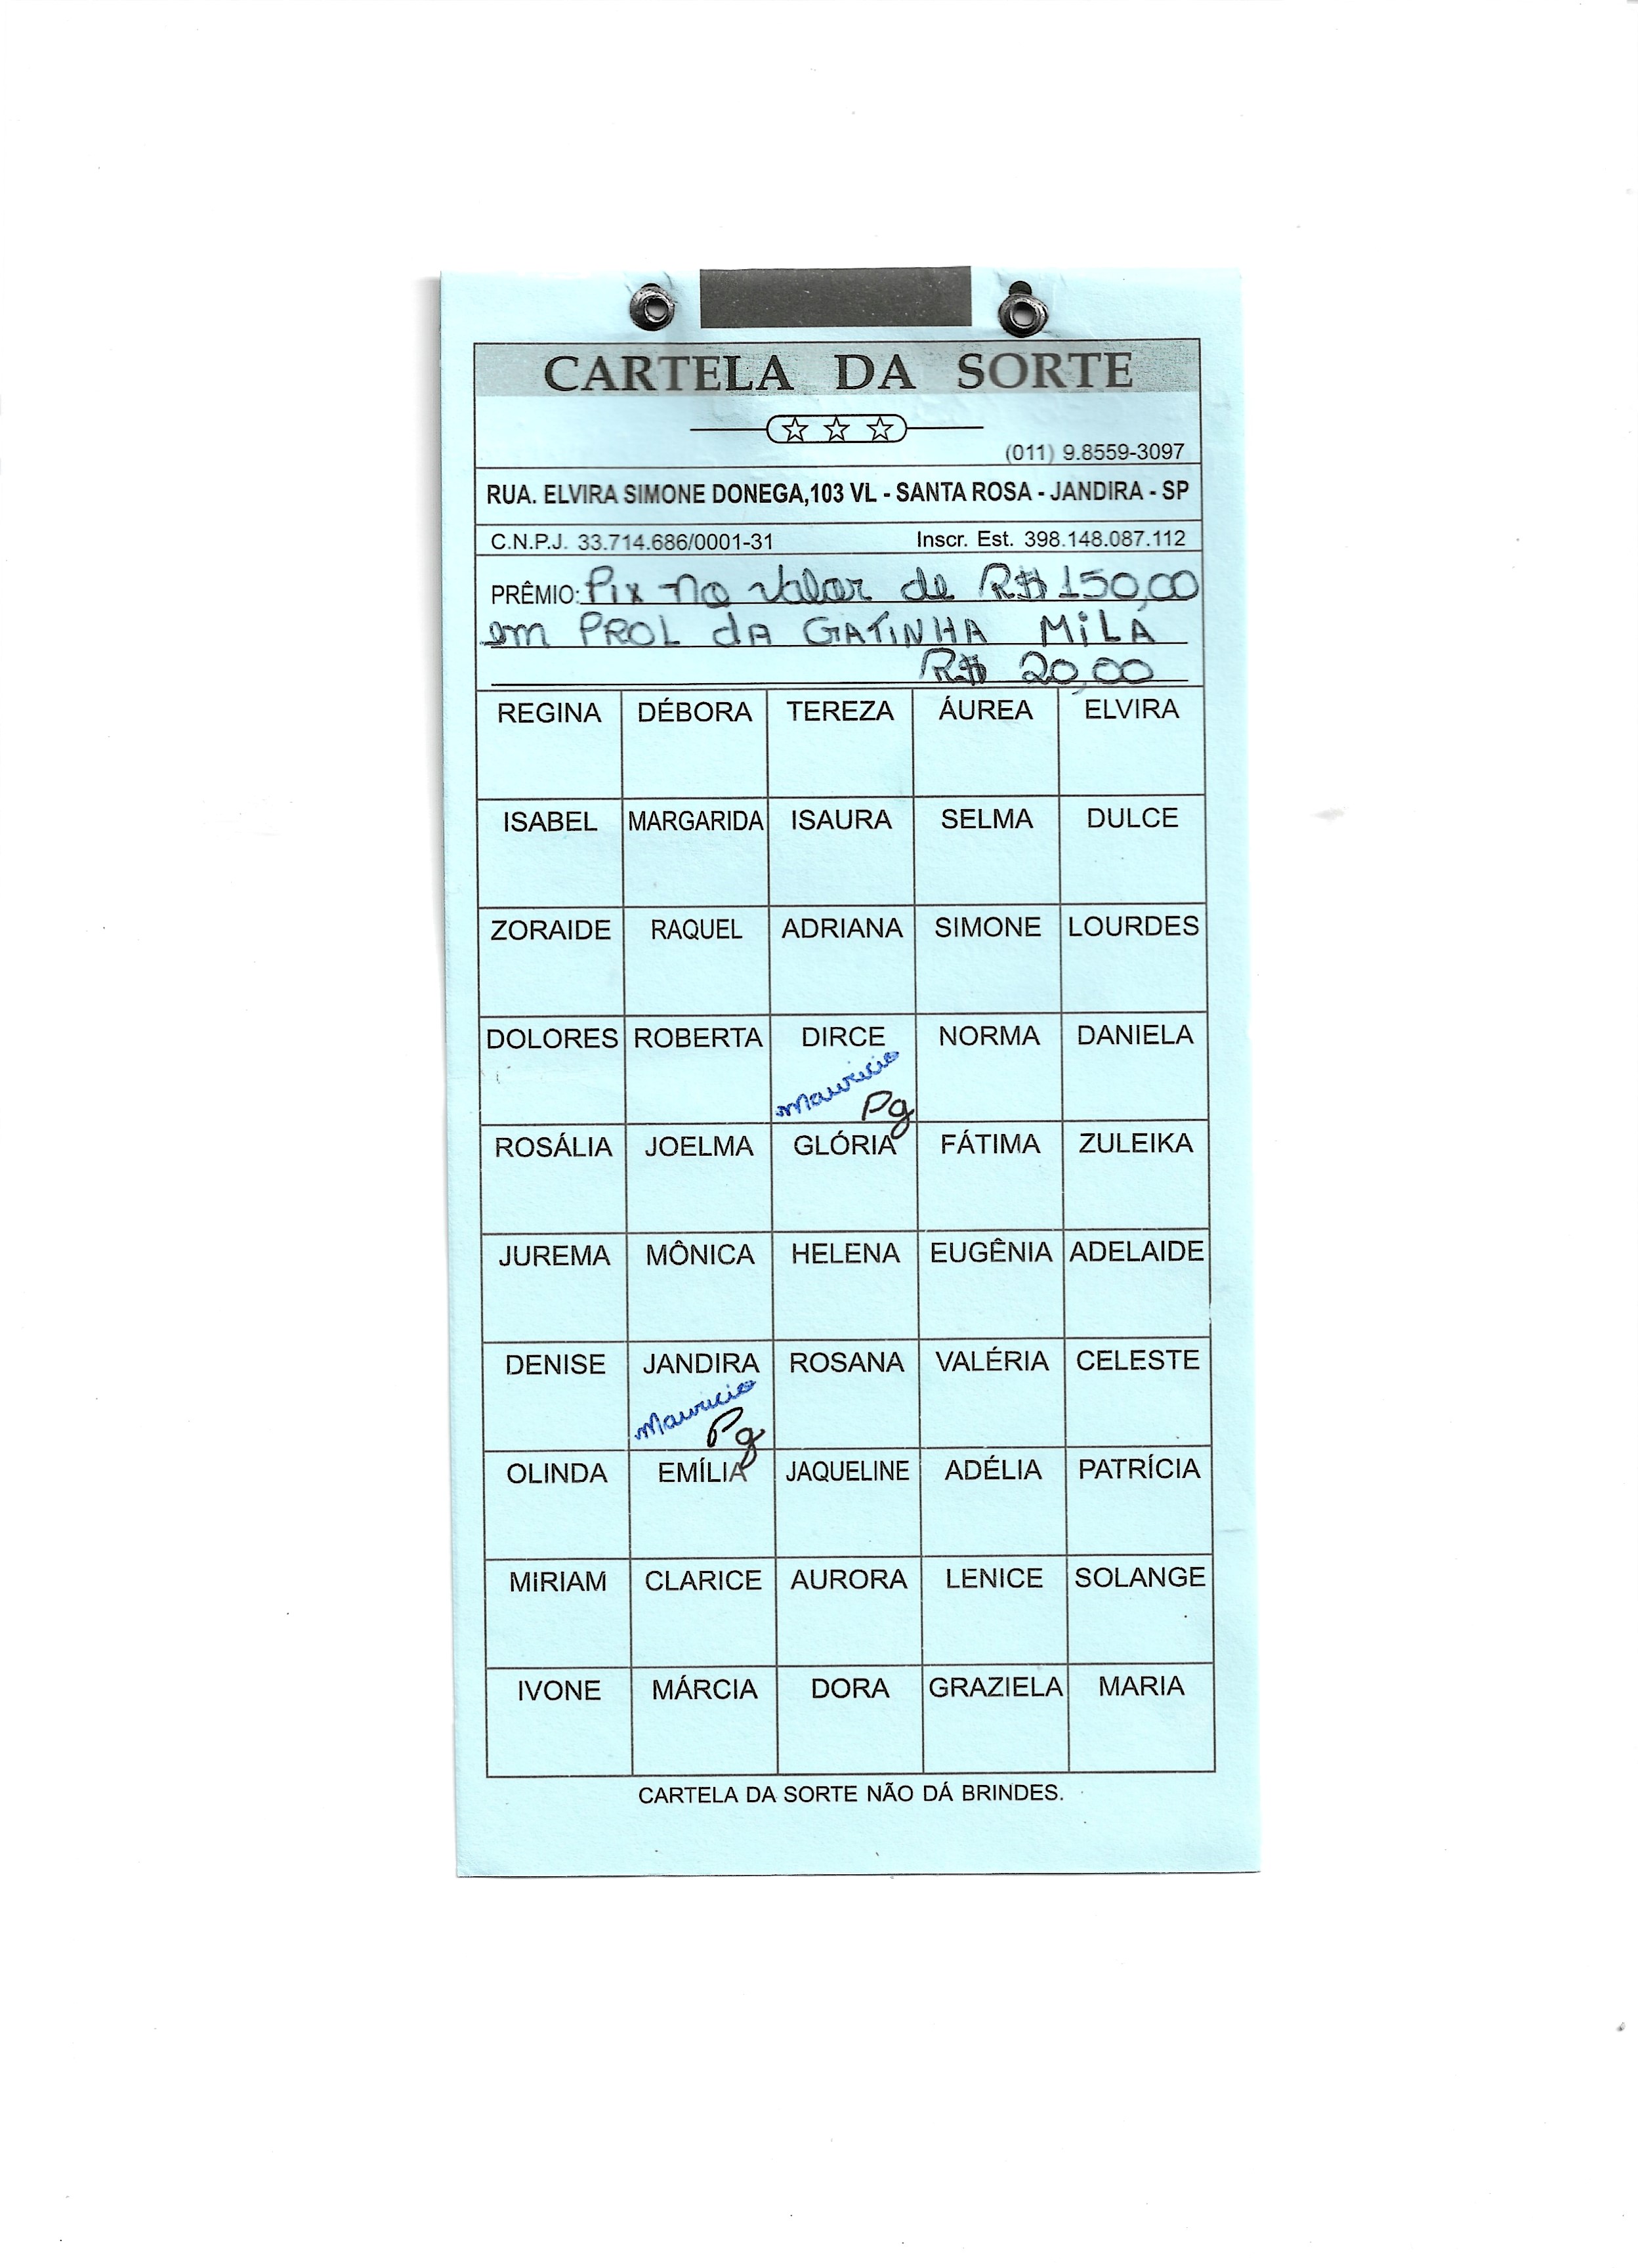 CARTELA DA SORTE
(011) 9.8559-3097
RUA. ELVIRA SIMONE DONEGA,103 VL - SANTA ROSA - JANDIRA - SP
C.N.P.J. 33.714.686/0001-31 Inscr. Est. 398.148.087.112
PRÊMIO: Pix no valor de R$ 150,00
em PROL dA GATINHA MiLA
R$ 20,00
REGINA DÉBORA TEREZA ÁUREA ELVIRA
ISABEL MARGARIDA ISAURA SELMA DULCE
ZORAIDE RAQUEL ADRIANA SIMONE LOURDES
DOLORES ROBERTA DIRCE NORMA DANIELA
Mauricio
Pg
ROSÁLIA JOELMA GLÓRIA FÁTIMA ZULEIKA
JUREMA MÔNICA HELENA EUGÊNIA ADELAIDE
DENISE JANDIRA ROSANA VALÉRIA CELESTE
Mauricio
Pg
OLINDA EMÍLIA JAQUELINE ADÉLIA PATRÍCIA
MIRIAM CLARICE AURORA LENICE SOLANGE
IVONE MÁRCIA DORA GRAZIELA MARIA
CARTELA DA SORTE NÃO DÁ BRINDES.